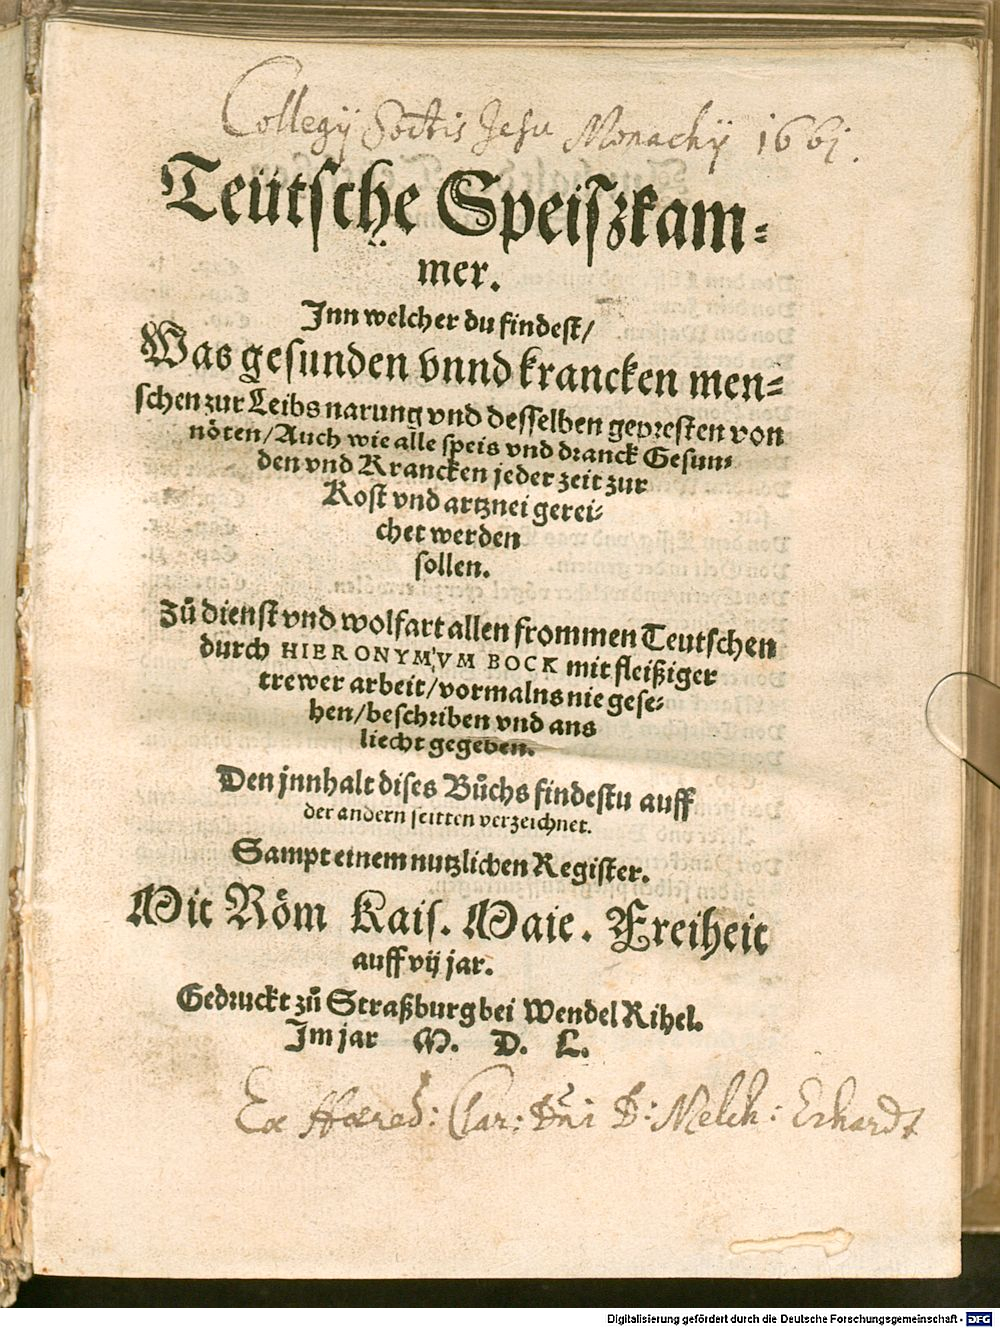 Collegij Soctis Jesu Monachij 1661.
Teütsche Speiszkam-
mer.
Inn welcher du findest/
Was gesunden vnnd krancken men-
schen zur Leibs narung vnd desselben gepresten von
nöten/Auch wie alle speis vnd dranck Gesun-
den vnd Krancken jeder zeit zur
Kost vnd artznei gerei-
chet werden
sollen.
Zů dienst vnd wolfart allen frommen Teutschen
durch HIERONYMVM BOCK mit fleißiger
trewer arbeit/vormalns nie gese-
hen/beschriben vnd ans
liecht gegeben.
Den jnnhalt dises Bůchs findestu auff
der andern seitten verzeichnet.
Sampt einem nutzlichen Register.
Mit Röm Kais. Maie. Freiheit
auff vij jar.
Gedruckt zů Straßburg bei Wendel Rihel.
Im jar M. D. L.
Ex Hæred: Clar: Dni D: Melch: Erhardt
Digitalisierung gefördert durch die Deutsche Forschungsgemeinschaft - DFG